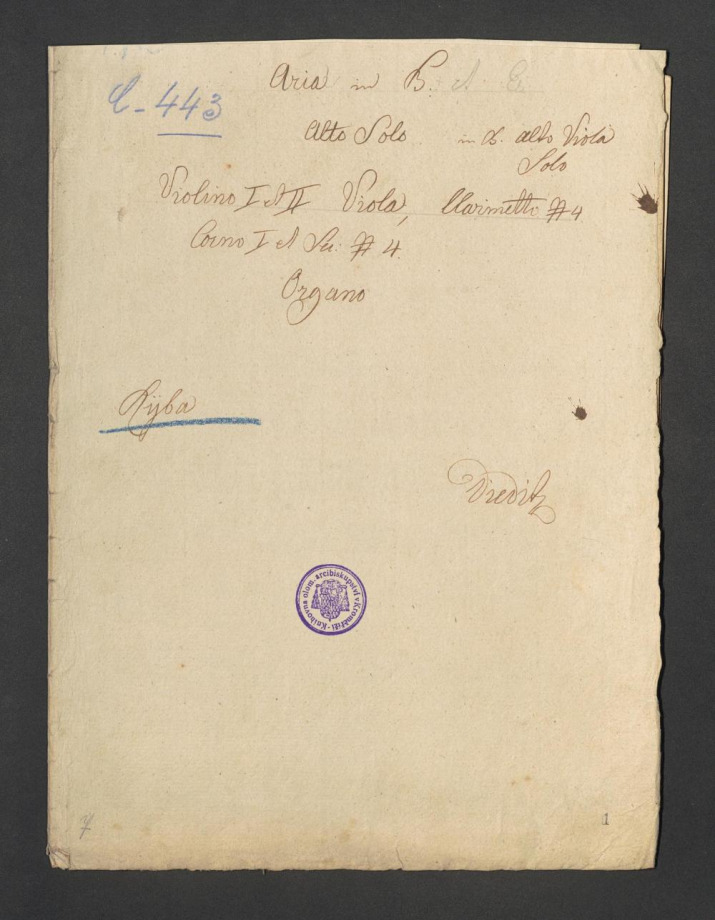 C - 443
Aria in B. et E
Alto Solo in d. alto Viola
Solo
Violino I et II Viola, Clarinetto # 4
Corno I et Se: # 4.
Organo
Ryba
Knihovna olom. arcibiskupství v Kroměříži
7
1